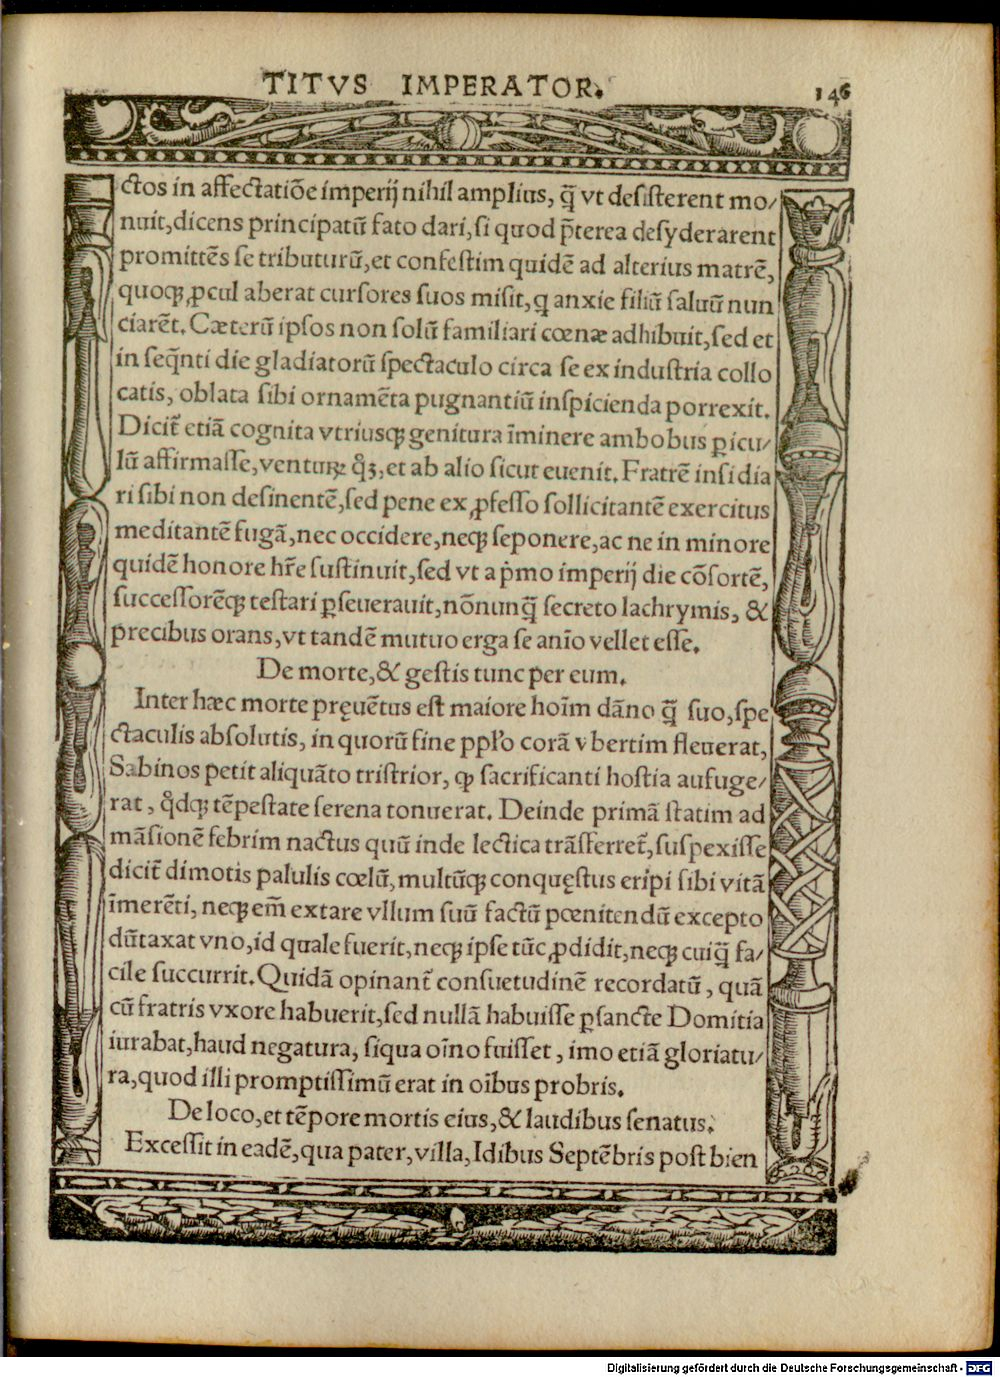 TITVS IMPERATOR.
146
ctos in affectatiõe imperij nihil amplius, q̃ vt desisterent mo/
nuit,dicens principatũ fato dari,si quod p̃terea desyderarent
promittẽs se tributurũ,et confestim quidẽ ad alterius matrẽ,
quoqꝫ ꝓcul aberat cursores suos misit,q anxie filiũ saluũ nun
ciarẽt. Cæterũ ipsos non solũ familiari cœnæ adhibuit,sed et
in seq̃nti die gladiatorũ spectaculo circa se ex industria collo
catis, oblata sibi ornamẽta pugnantiũ inspicienda porrexit.
Dicit̃ etiã cognita vtriusqꝫ genitura ĩminere ambobus ꝑicu/
lũ affirmasse,venturꝝ qͦꝫ,et ab alio sicut euenit. Fratrẽ insidia
ri sibi non desinentẽ,sed pene ex ꝓfesso sollicitantẽ exercitus
meditantẽ fugã,nec occidere,neqꝫ seponere,ac ne in minore
quidẽ honore hr̃e sustinuit,sed vt a pͥmo imperij die cõsortẽ,
successorẽqꝫ testari ꝑseuerauit,nõnunq̃ secreto lachrymis, &
precibus orans,vt tandẽ mutuo erga se anĩo vellet esse.
De morte,& gestis tunc per eum.
Inter hæc morte pręuẽtus est maiore hoĩm dãno q̃ suo,spe
ctaculis absolutis, in quorũ fine ppl̃o corã vbertim fleuerat,
Sabinos petit aliquãto tristrior, ꝙ sacrificanti hostia aufuge/
rat, qͦdqꝫ tẽpestate serena tonuerat. Deinde primã statim ad
mãsionẽ febrim nactus quũ inde lectica trãsferret̃,suspexisse
dicit̃ dimotis palulis cœlũ,multũqꝫ conquęstus eripi sibi vitã
ĩmerẽti, neqꝫ em̃ extare vllum suũ factũ pœnitendũ excepto
dũtaxat vno,id quale fuerit,neqꝫ ipse tũc ꝓdidit,neqꝫ cuiq̃ fa/
cile succurrit. Quidã opinant̃ consuetudinẽ recordatũ, quã
cũ fratris vxore habuerit,sed nullã habuisse ꝑsancte Domitia
iurabat,haud negatura, siqua oĩno fuisset, imo etiã gloriatu/
ra,quod illi promptissimũ erat in oĩbus probris.
De loco,et tẽpore mortis eius,& laudibus senatus.
Excessit in eadẽ,qua pater,villa,Idibus Septẽbris post bien
Digitalisierung gefördert durch die Deutsche Forschungsgemeinschaft - DFG